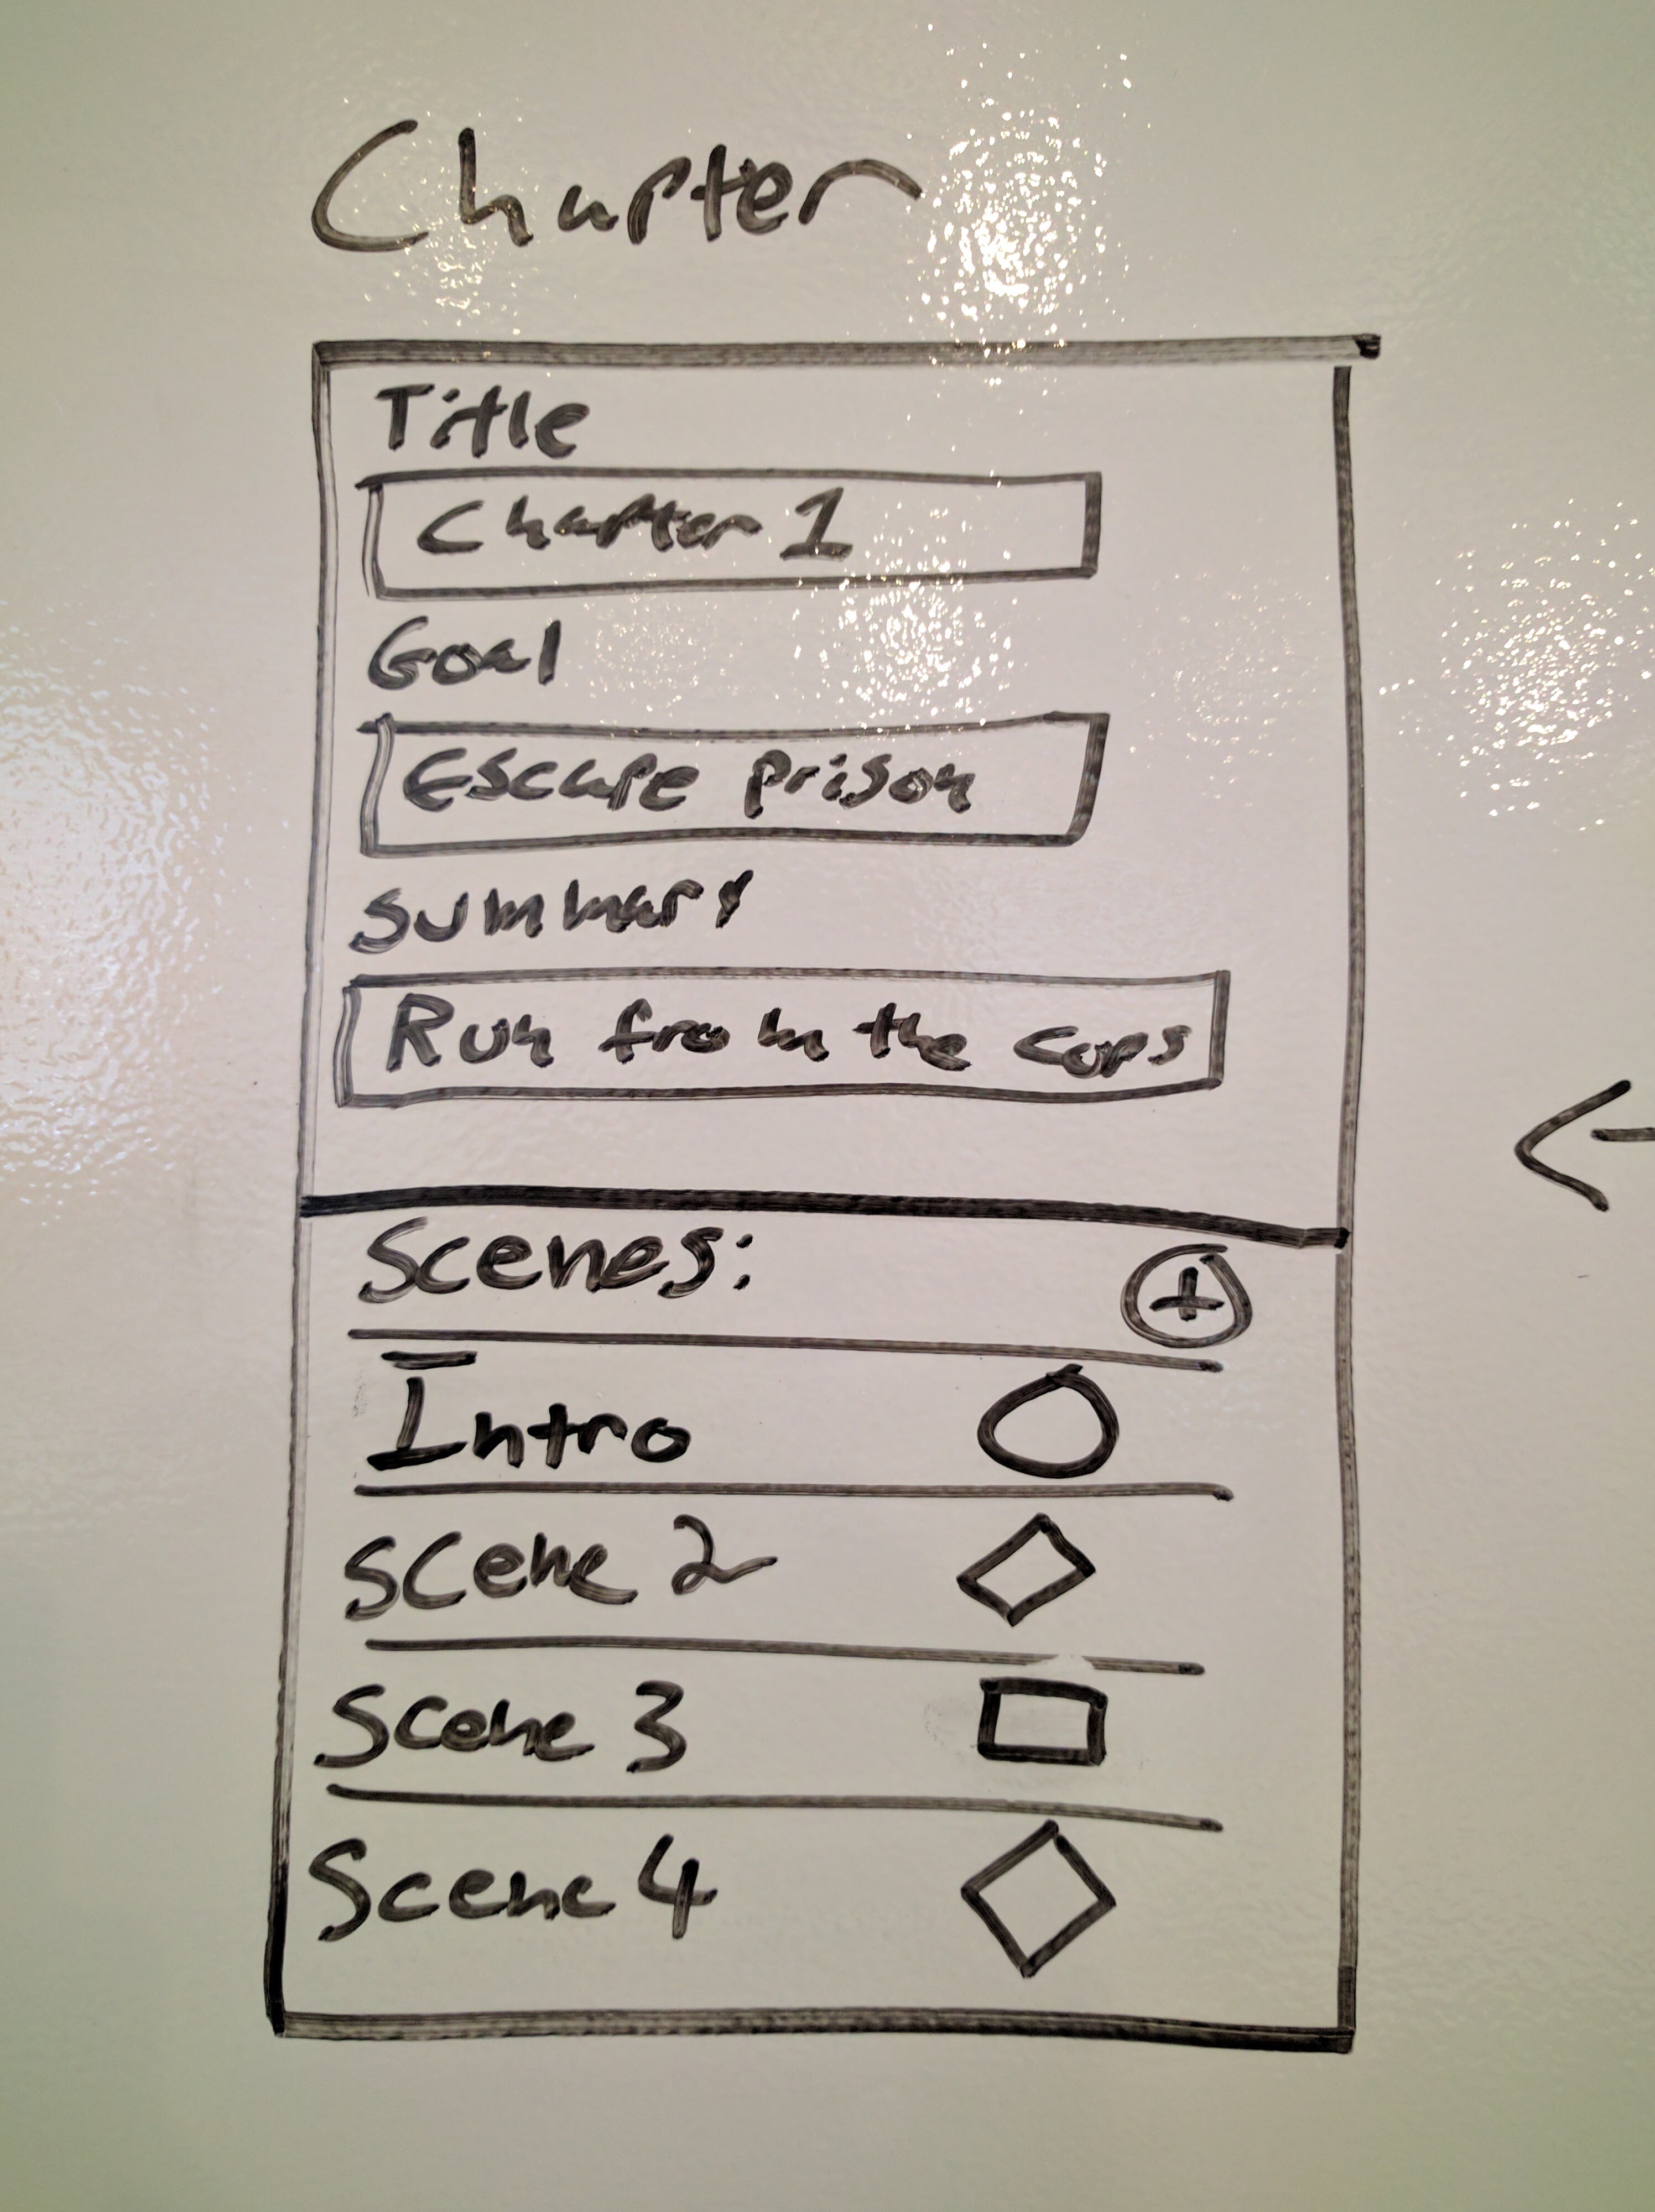 Chapter
Title
Chapter 1
Goal
Escape prison
Summary
Run from the cops
Scenes: +
Intro
Scene 2
Scene 3
Scene 4